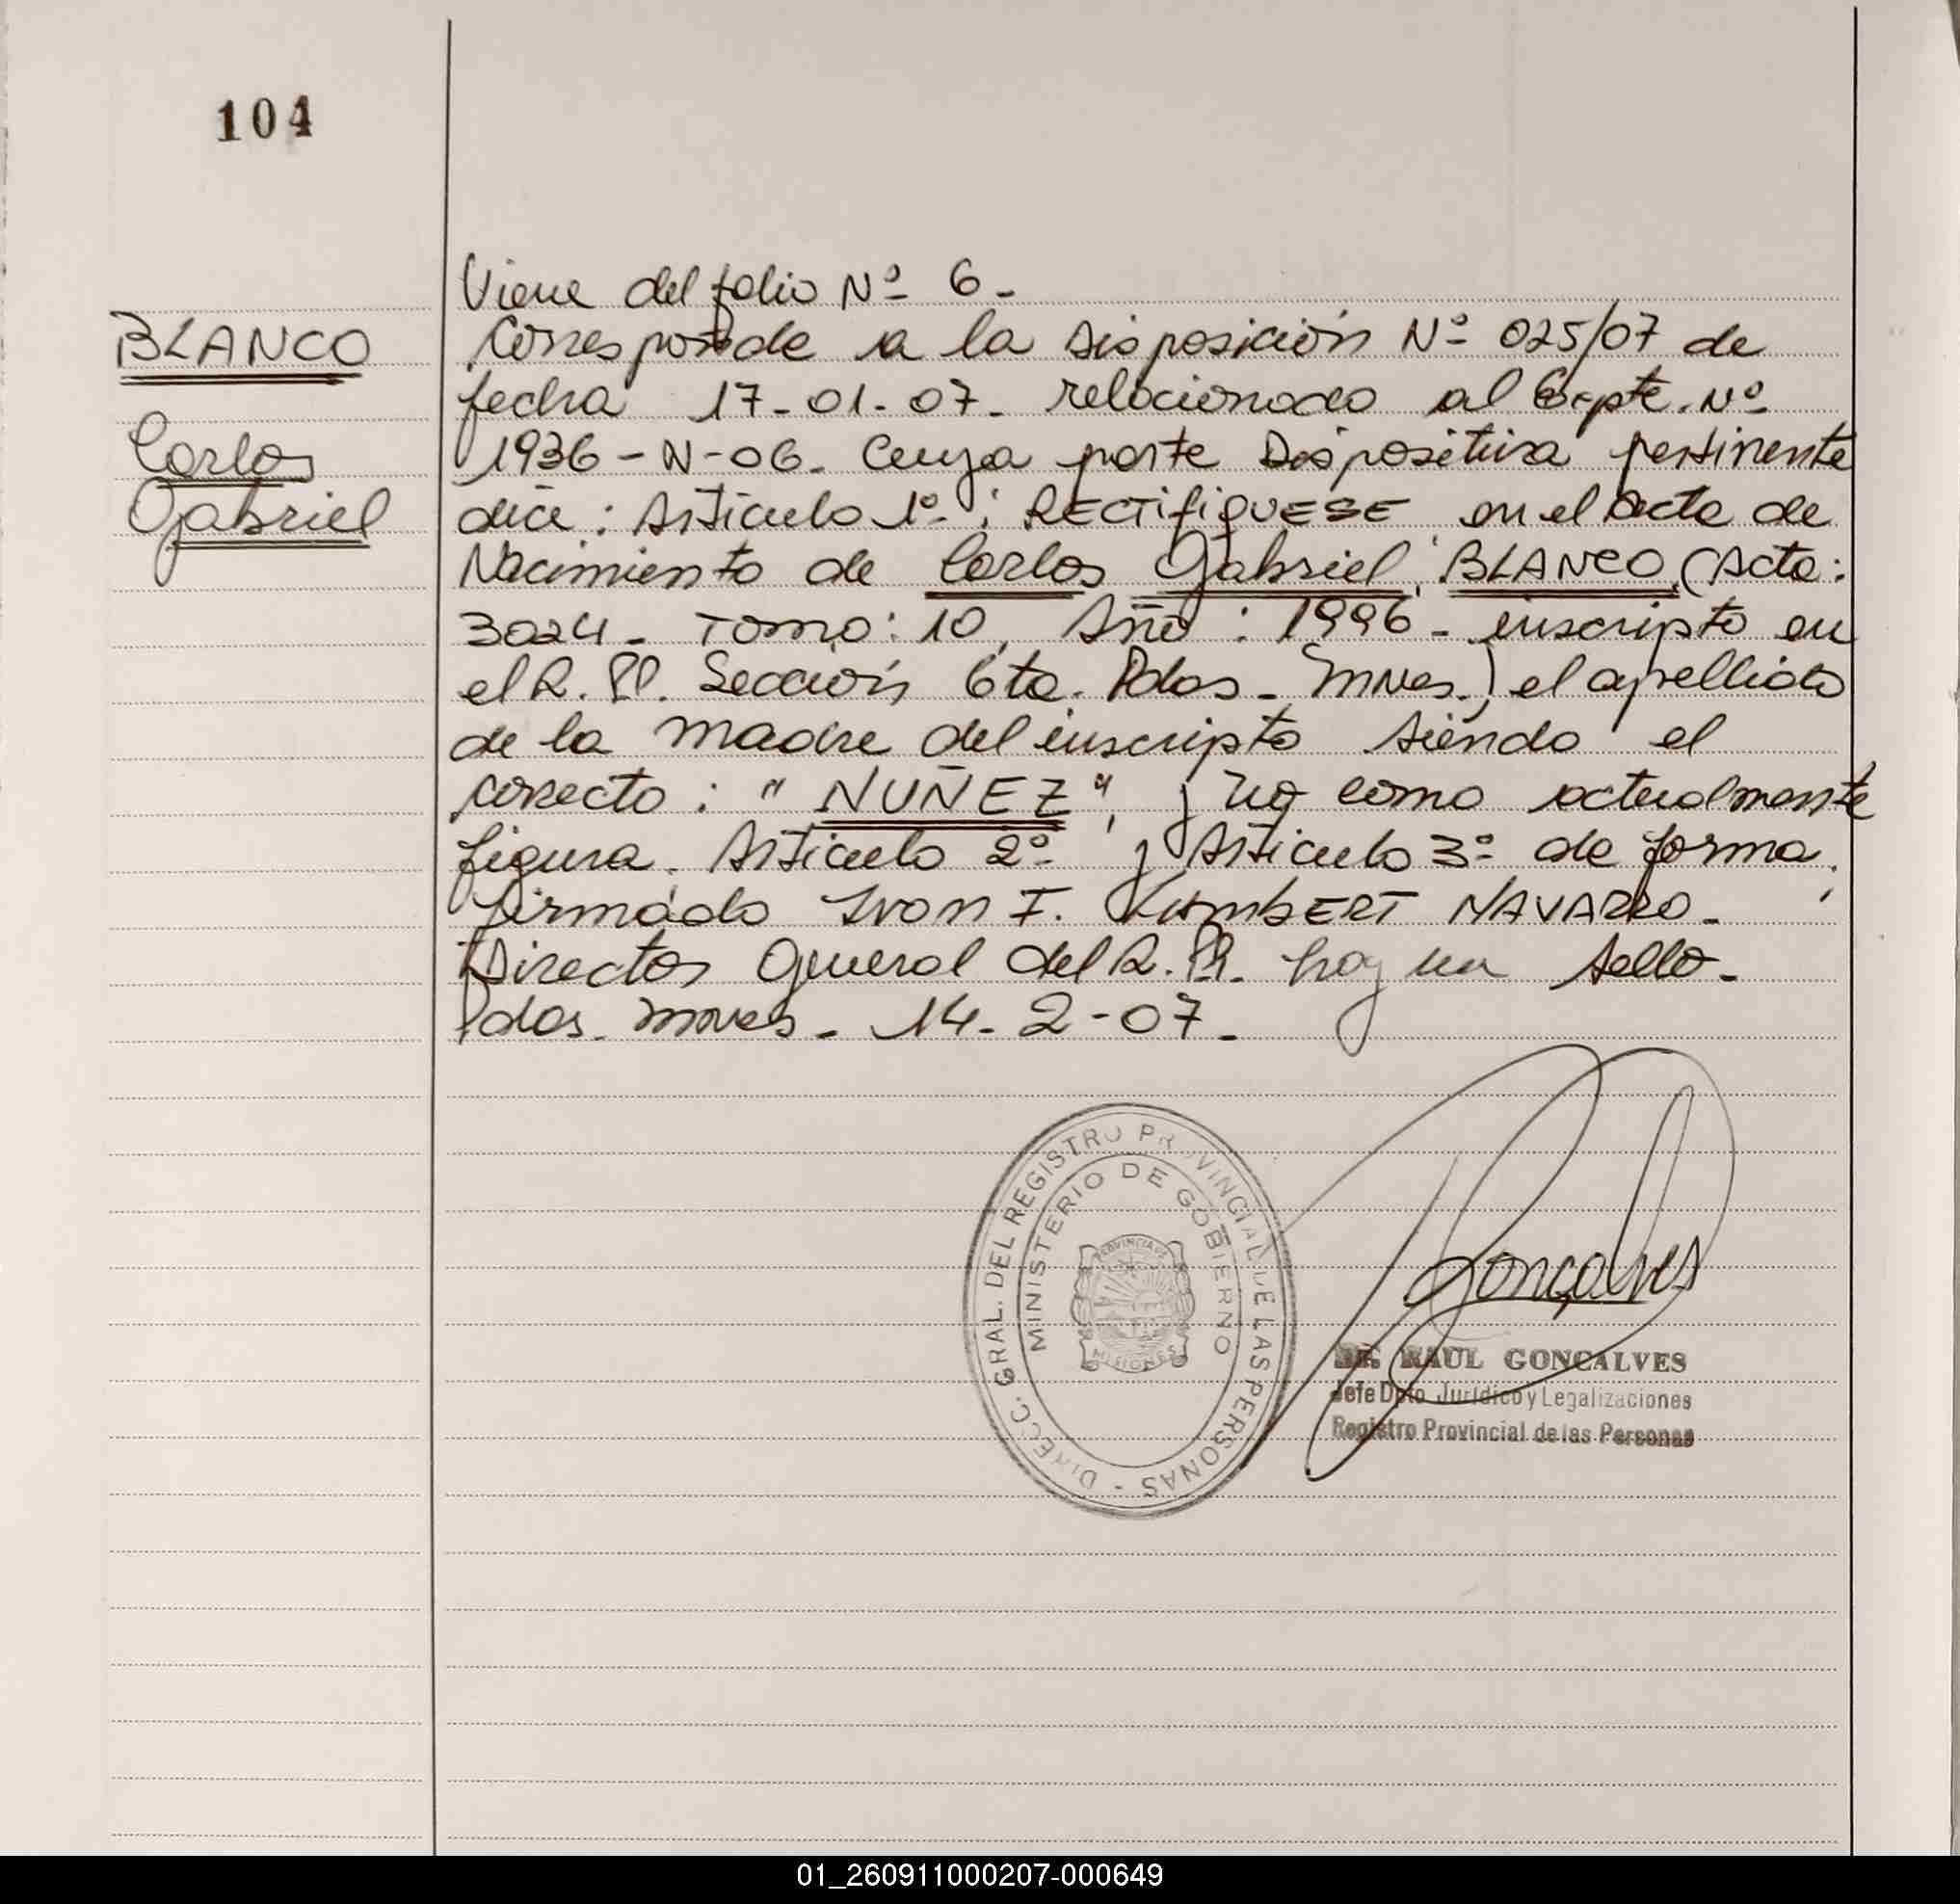 104
BLANCO
Carlos
Gabriel
Viene del folio Nº 6-
Corresponde a la Disposición Nº 025/07 de
fecha 17-01-07- relacionado al Expte. Nº
1936-N-06- Cuya parte Dispositiva pertinente
dice: Artículo 1º: RECTIFIQUESE en el Acta de
Nacimiento de Carlos Gabriel BLANCO (Acta:
3024- Tomo: 10, Año: 1996- inscripto en
el R.P.P. Sección 6ta. Pdas- Mnes.) el apellido
de la madre del inscripto siendo el
correcto: "NUÑEZ", y no como actualmente
figura. Artículo 2º y Artículo 3º de forma.
firmado Ivan F. NAVARRO-
Director General del R.P.P. hay un sello-
Pdas- mnes- 14-2-07-
DIRECC. GRAL. DEL REGISTRO PROVINCIAL DE LAS PERSONAS -
MINISTERIO DE GOBIERNO
PROVINCIA DE
MISIONES
Gonçalves
Dr. RAUL GONCALVES
Jefe Dpto Jurídico y Legalizaciones
Registro Provincial de las Personas
01_260911000207-000649